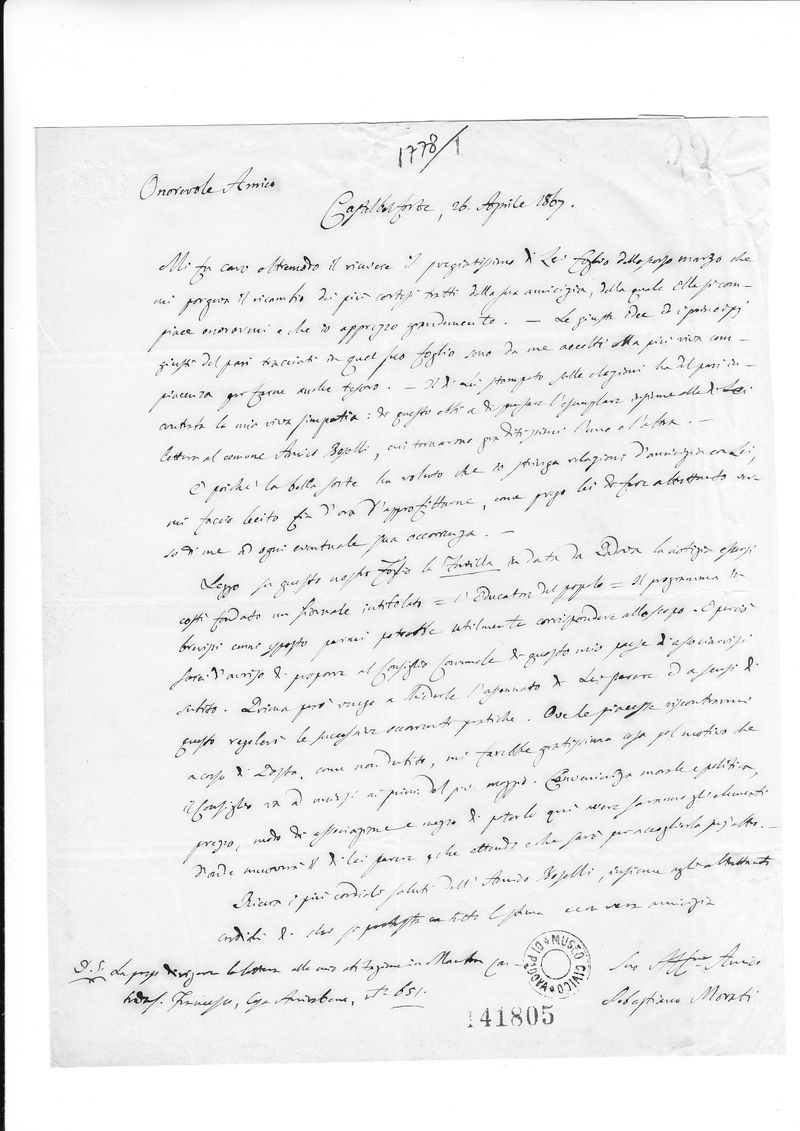 1778/1
Onorevole Amico
Castelbelforte, 26. Aprile 1867.
Mi fu caro oltremodo il ricevere il pregiatissimo di Lei foglio dello scorso marzo che
mi porgeva il ricambio dei più cortesi tratti della sua amicizia, della quale Ella si com-
piace onorarmi e che io apprezzo grandemente. — Le giuste idee ed i principj
giusti del pari tracciati in quel suo foglio sono da me accolti colla più viva com-
piacenza per farne anche tesoro. — Il di Lei stampato sulle elezioni ha del pari in-
contrata la mia viva simpatia: di questo ebbi a dispensare l'esemplare insieme alla di Lei
lettera al comune Amico Boselli, cui tornarono graditissimi l'uno e l'altra. —
E poichè la bella sorte ha voluto che io stringa relazioni d'amicizia con Lei,
mi faccio lecito fin d'ora d'approfittarne, come prego Lei di fare altrettanto ver-
so di me ad ogni eventuale sua occorrenza. —
Leggo su questo nostro foglio la Favilla in data da Padova la notizia essersi
costì fondato un Giornale intitolato = l'Educatore del popolo = Il programma in
brevissimi cenni esposto parmi potrebbe utilmente corrispondere allo scopo. E perciò
sarei d'avviso di proporre al Consiglio Comunale di questo mio paese d'associarvisi
subito. Prima però vengo a chiederle l'assennato di Lei parere ed a sensi di
questo regolerò le successive occorrenti pratiche. Ove le piacesse riscontrarmi
a corso di Posta, come non dubito, mi farebbe gratissima cosa pel motivo che
il Consiglio va ad unirsi ai primi del p.v. maggio. Convenienza morale e politica,
prezzo, modo di associazione e mezzo di poterlo quì avere saranno gli elementi
di cui il di Lei parere che attendo e che sarò per accogliere
Riceva i più cordiali saluti dell'Amico Boselli, insieme agli altrettanti
cordiali di chi si protesta con tutta stima e con vera amicizia
Suo Aff.mo Amico
Sebastiano Morati
P.S. La prego dirigere la lettera alla mia abitazione in Mantova
Francesco, Casa N. 651.
MUSEO CIVICO DI PADOVA
141805